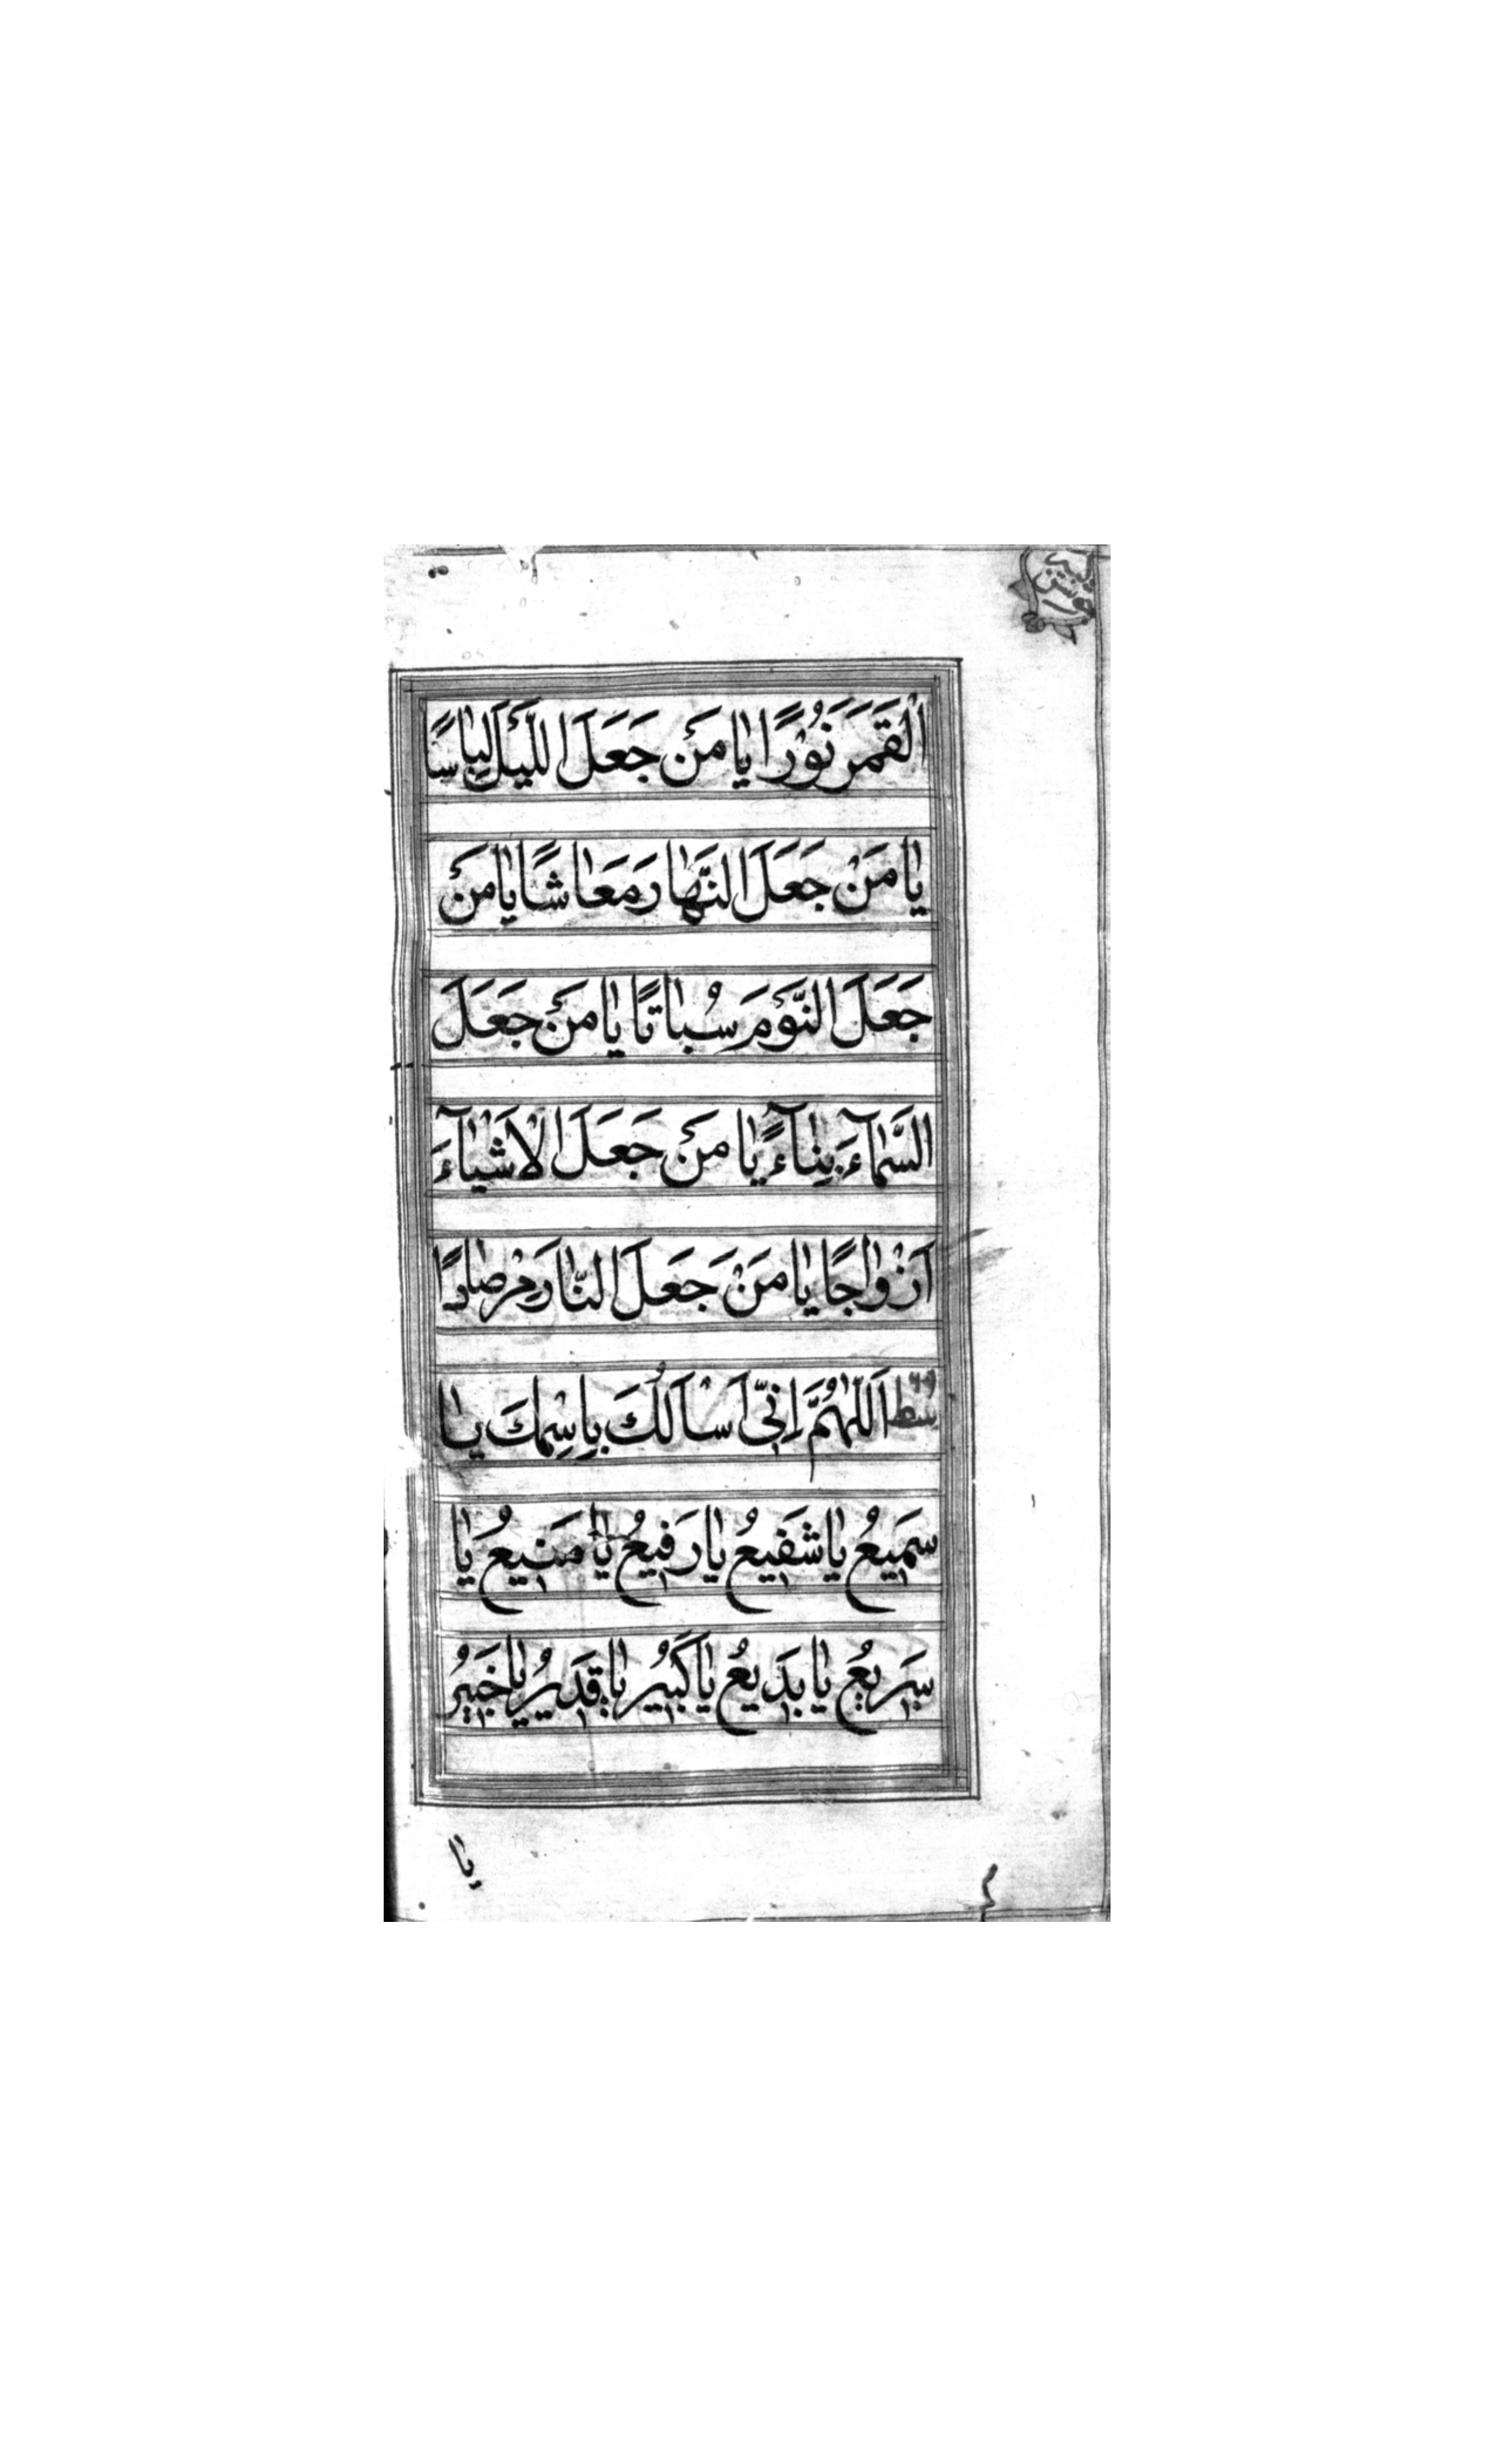 الْقَمَرَ نُوْرًا يٰا مَنْ جَعَلَ اللَّيْلَ لِبٰاسًا
يٰا مَنْ جَعَلَ النَّهٰارَ مَعٰاشًا يٰا مَنْ
جَعَلَ النَّوْمَ سُبٰاتًا يٰا مَنْ جَعَلَ
السَّمٰآءَ بِنٰآءً يٰا مَنْ جَعَلَ الْاَشْيٰآءَ
اَزْوٰاجًا يٰا مَنْ جَعَلَ النّٰارَ مِرْصٰادًا
۶۹ سط اَللّٰهُمَّ اِنّٖى اَسْاَلُكَ بِاسْمِكَ يٰا
سَمٖيعُ يٰا شَفٖيعُ يٰا رَفٖيعُ يٰا مَنٖيعُ يٰا
سَرٖيعُ يٰا بَدٖيعُ يٰا كَبٖيرُ يٰا قَدٖيرُ يٰا خَبٖيرُ
يٰا